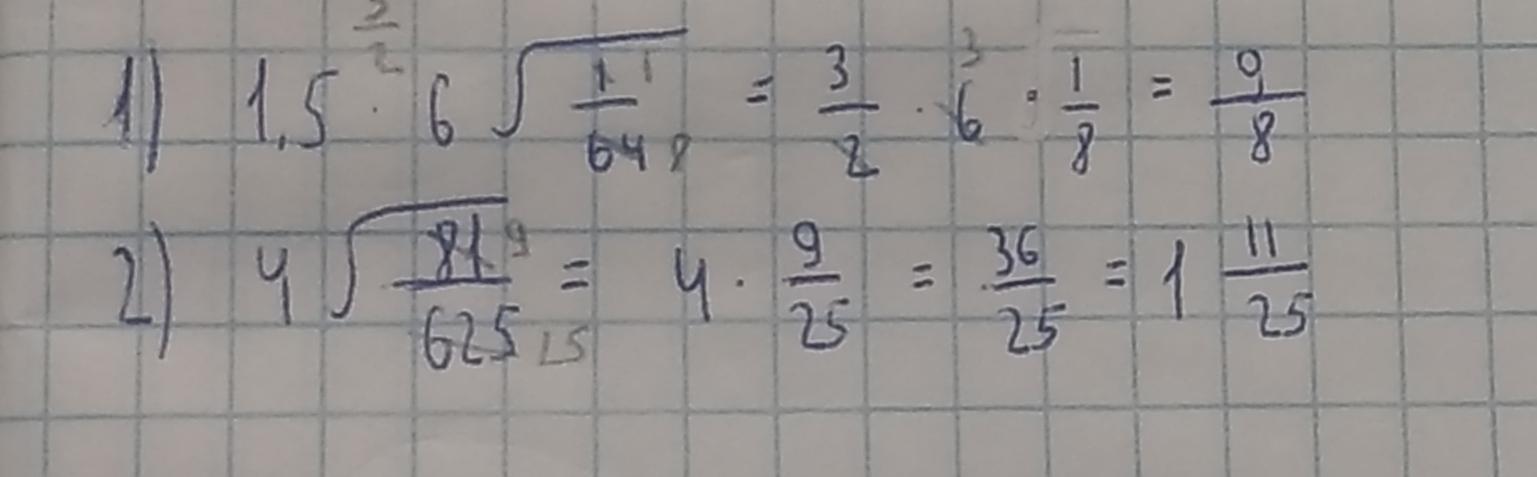 1) 1,5 · 6 √(1/64) = 3/2 · 6 · 1/8 = 9/8
2) 4 √(81/625) = 4 · 9/25 = 36/25 = 1 11/25